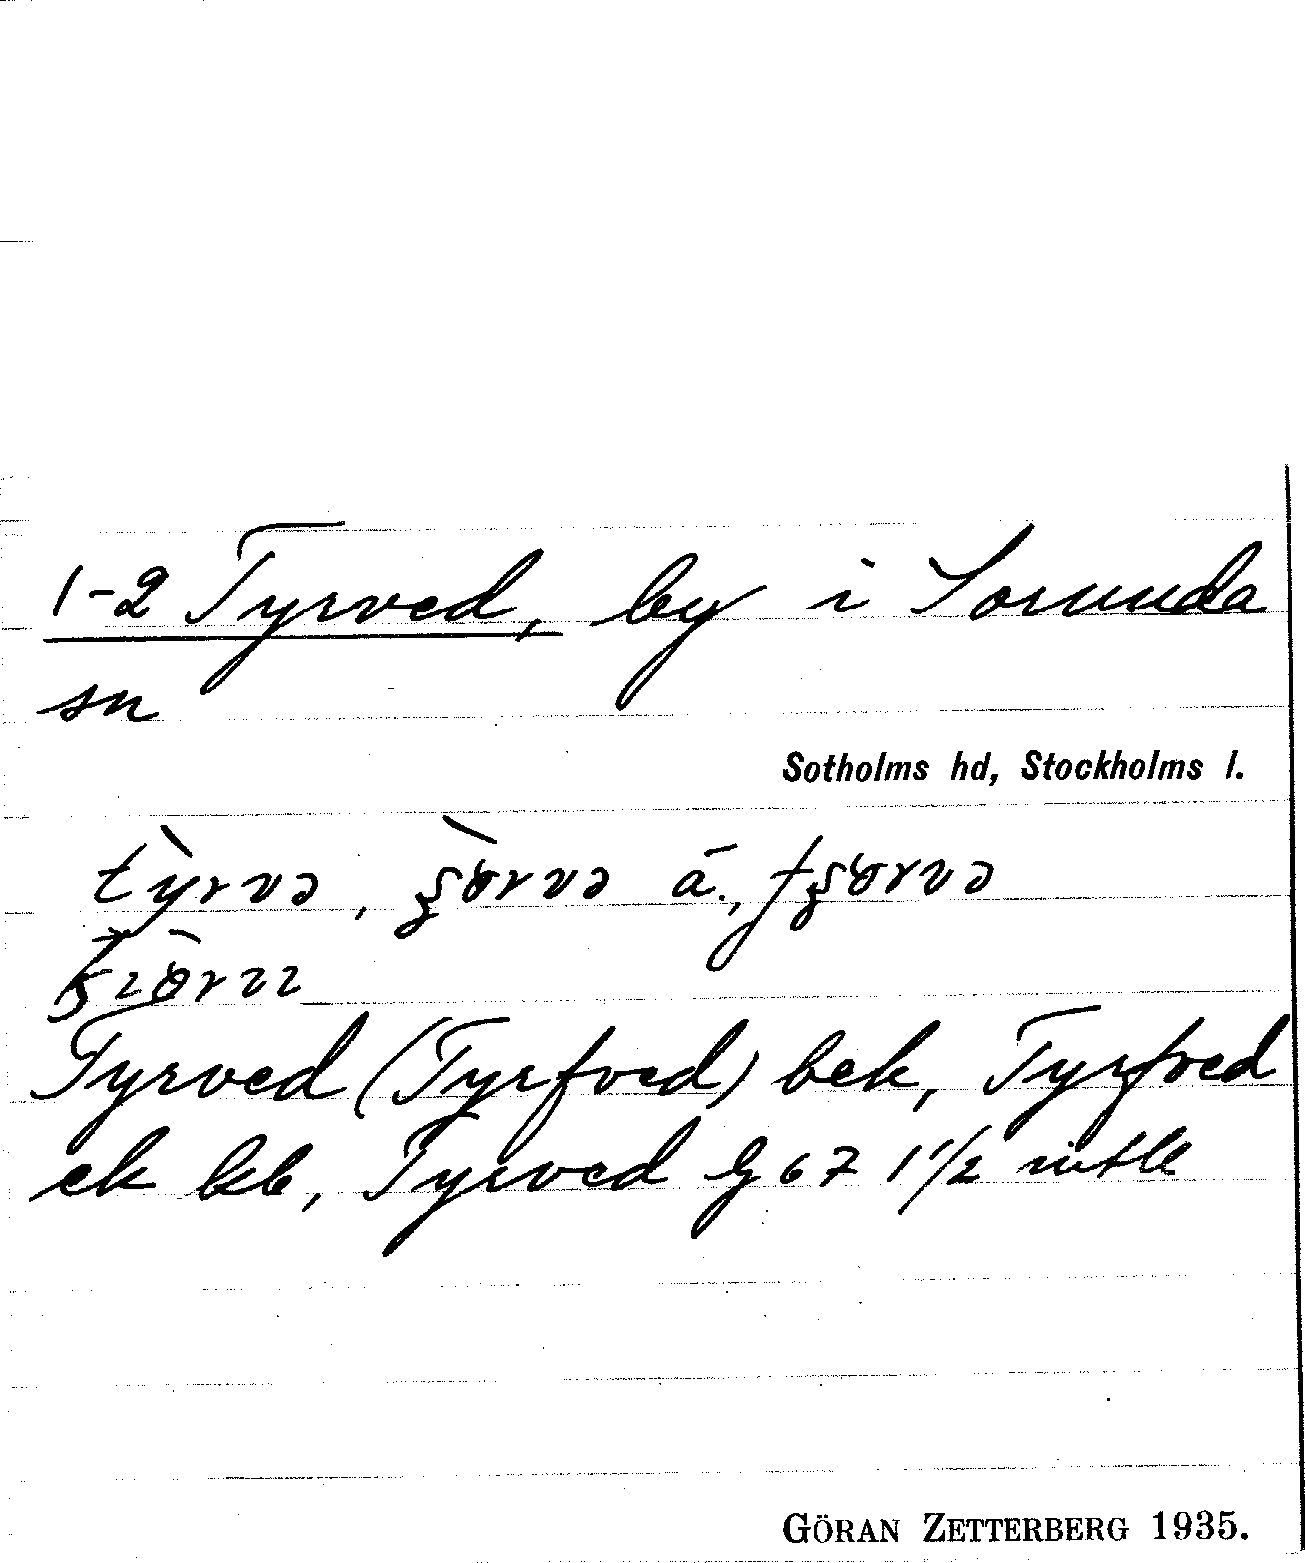 1-2 Tyrved, by i Sorunda
sn
Sotholms hd, Stockholms l.
tỳrvə, ʂòrvə ä.,
Tyrved (Tyrfved) bek, Tyrfved
ek kb, Tyrved G 67 1 1/2 mtl
GÖRAN ZETTERBERG 1935.